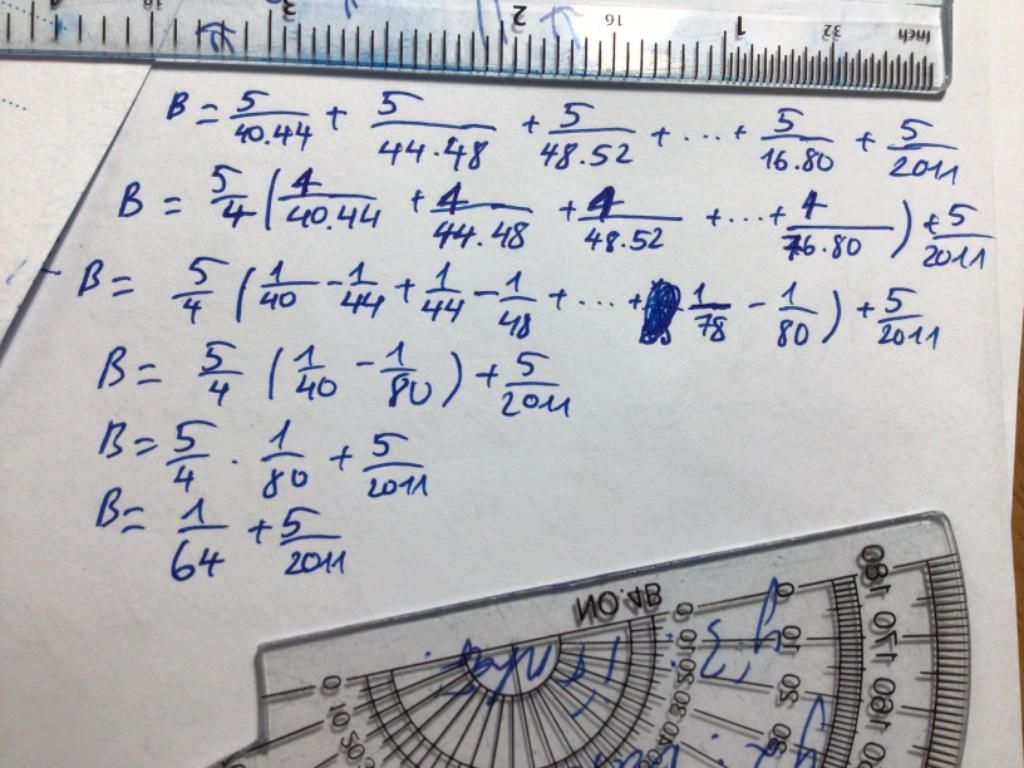 3 2 16 1 32 Inch
B = 5/40.44 + 5/44.48 + 5/48.52 + ... + 5/16.80 + 5/2011
B = 5/4 (4/40.44 + 4/44.48 + 4/48.52 + ... + 4/76.80) + 5/2011
B = 5/4 (1/40 - 1/44 + 1/44 - 1/48 + ... + 1/78 - 1/80) + 5/2011
B = 5/4 (1/40 - 1/80) + 5/2011
B = 5/4 . 1/80 + 5/2011
B = 1/64 + 5/2011
NO.4B
0 10 20 30
0 10 20
180 170 160
0 10 20